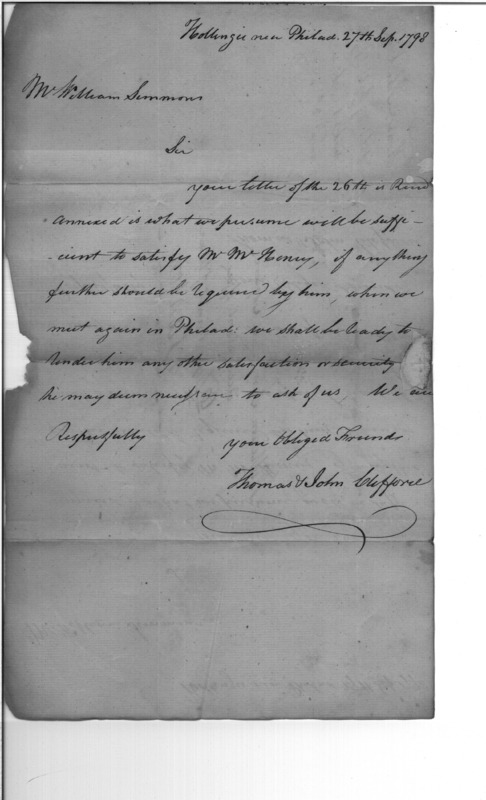 Hollinger near Philad. 27th Sep. 1798
Mr William Simmons
Sir
your letter of the 26th is Recd
annexed is what we presume will be suffi-
-cient to satisfy Mr McHenry, if anything
further should be required by him, when we
meet again in Philad: we shall be ready to
render him any other satisfaction or security
he may deem necessary to ask of us, We are
Respectfully your Obliged Friends
Thomas & John Clifford